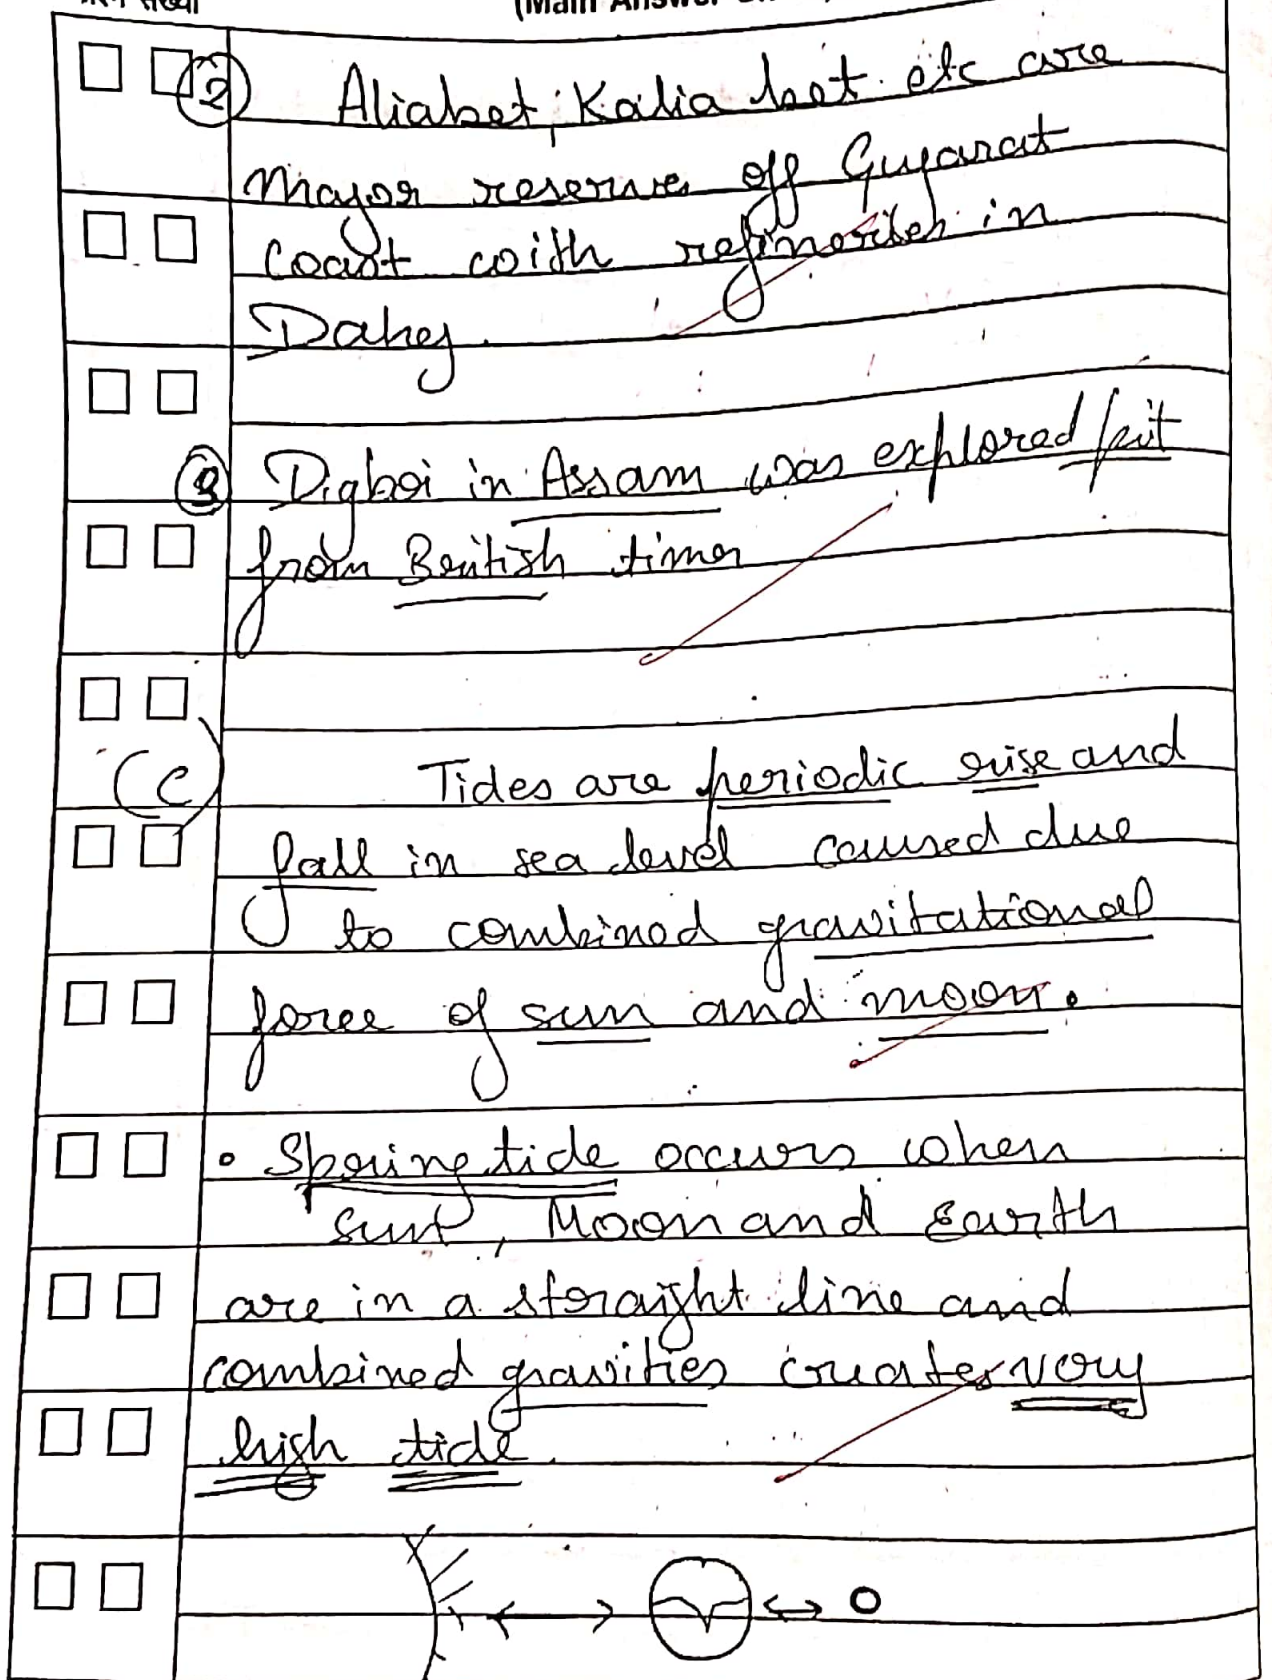 ② Aliabet, Kalia bet etc are
major reserves off Gujarat
coast with refineries in
Dahej.
③ Digboi in Assam was explored
from British times
(C) Tides are periodic rise and
fall in sea level caused due
to combined gravitational
force of sun and moon.
• Spring tide occurs when
sun, Moon and Earth
are in a straight line and
combined gravities creates very
high tide.